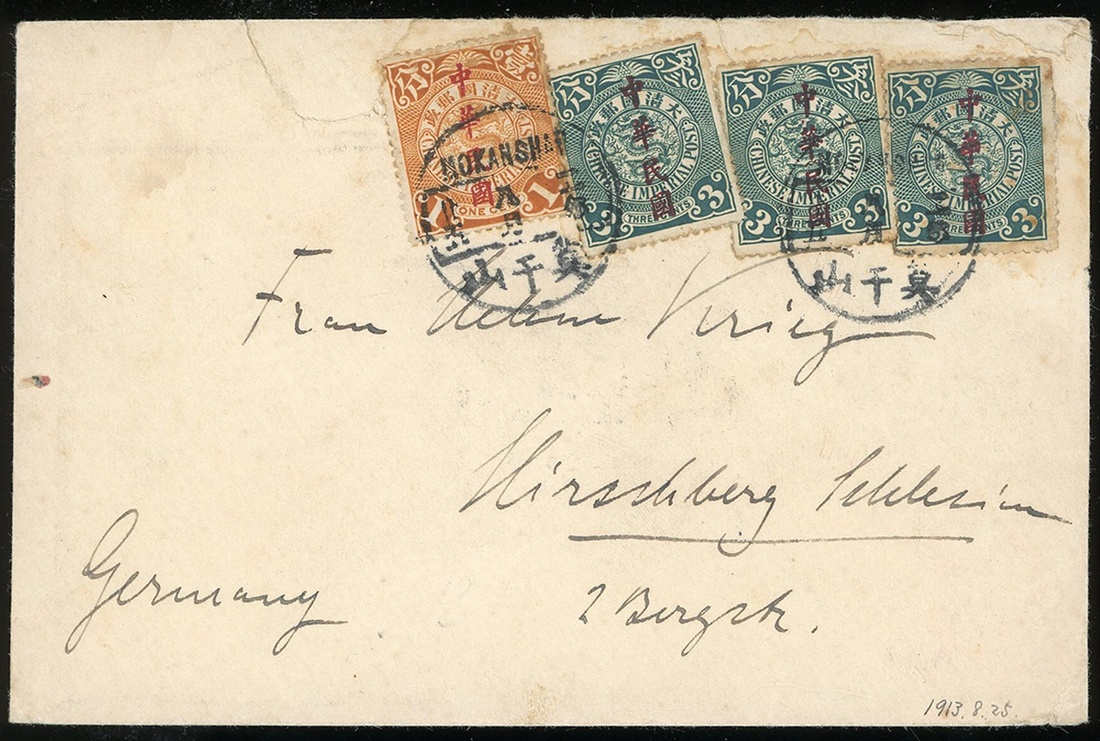 壹分
大清國郵政
中華民國
ONE CENT
1
CHINESE IMPERIAL POST
大清國郵政
中華民國
THREE CENTS
3
3
CHINESE IMPERIAL POST
大清國郵政
中華民國
THREE CENTS
3
3
CHINESE IMPERIAL POST
大清國郵政
中華民國
THREE CENTS
3
3
MOKANSHAN
八月
山干莫
山干莫
Frau Helene Krieg
Hirschberg Schlesien
Germany
2 Bergstr.
1913.8.25.